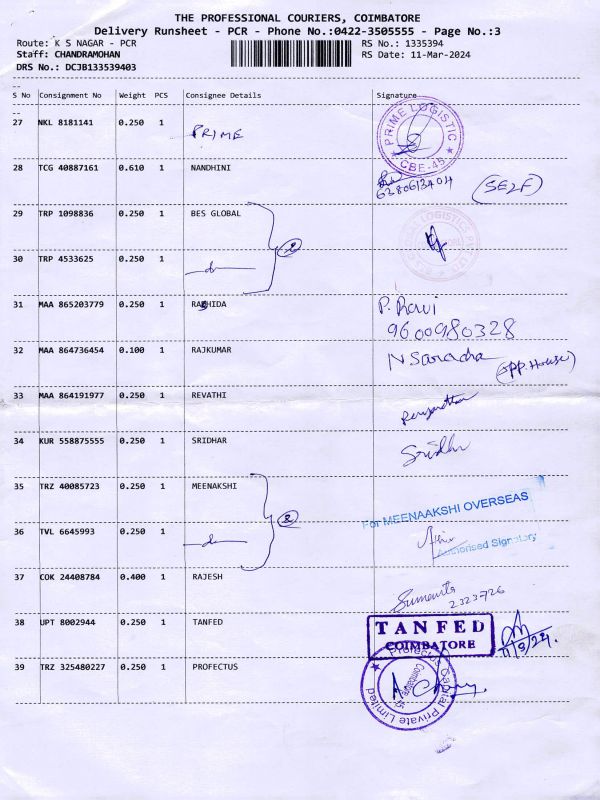 THE PROFESSIONAL COURIERS, COIMBATORE
Delivery Runsheet - PCR - Phone No.:0422-3505555 - Page No.:3
Route: K S NAGAR - PCR
RS No.: 1335394
Staff: CHANDRAMOHAN
RS Date: 11-Mar-2024
DRS No.: DCJB133539403
S No Consignment No Weight PCS Consignee Details Signature
27 NKL 8181141 0.250 1 PRIME
PRIME LOGISTIC
CBE-45
28 TCG 40887161 0.610 1 NANDHINI
6280613404 (SELF)
29 TRP 1098836 0.250 1 BES GLOBAL
2
30 TRP 4533625 0.250 1 -do-
31 MAA 865203779 0.250 1 RASHIDA P. Ravi
9600980328
32 MAA 864736454 0.100 1 RAJKUMAR N Saradha
(opp. House)
33 MAA 864191977 0.250 1 REVATHI
34 KUR 558875555 0.250 1 SRIDHAR Sridhr
35 TRZ 40085723 0.250 1 MEENAKSHI
2
For MEENAAKSHI OVERSEAS
36 TVL 6645993 0.250 1 -do-
Authorised Signatory
37 COK 24408784 0.400 1 RAJESH
2323726
38 UPT 8002944 0.250 1 TANFED
TANFED
COIMBATORE
11/3/24
39 TRZ 325480227 0.250 1 PROFECTUS
Profectus Capital Private Limited
Coimbatore